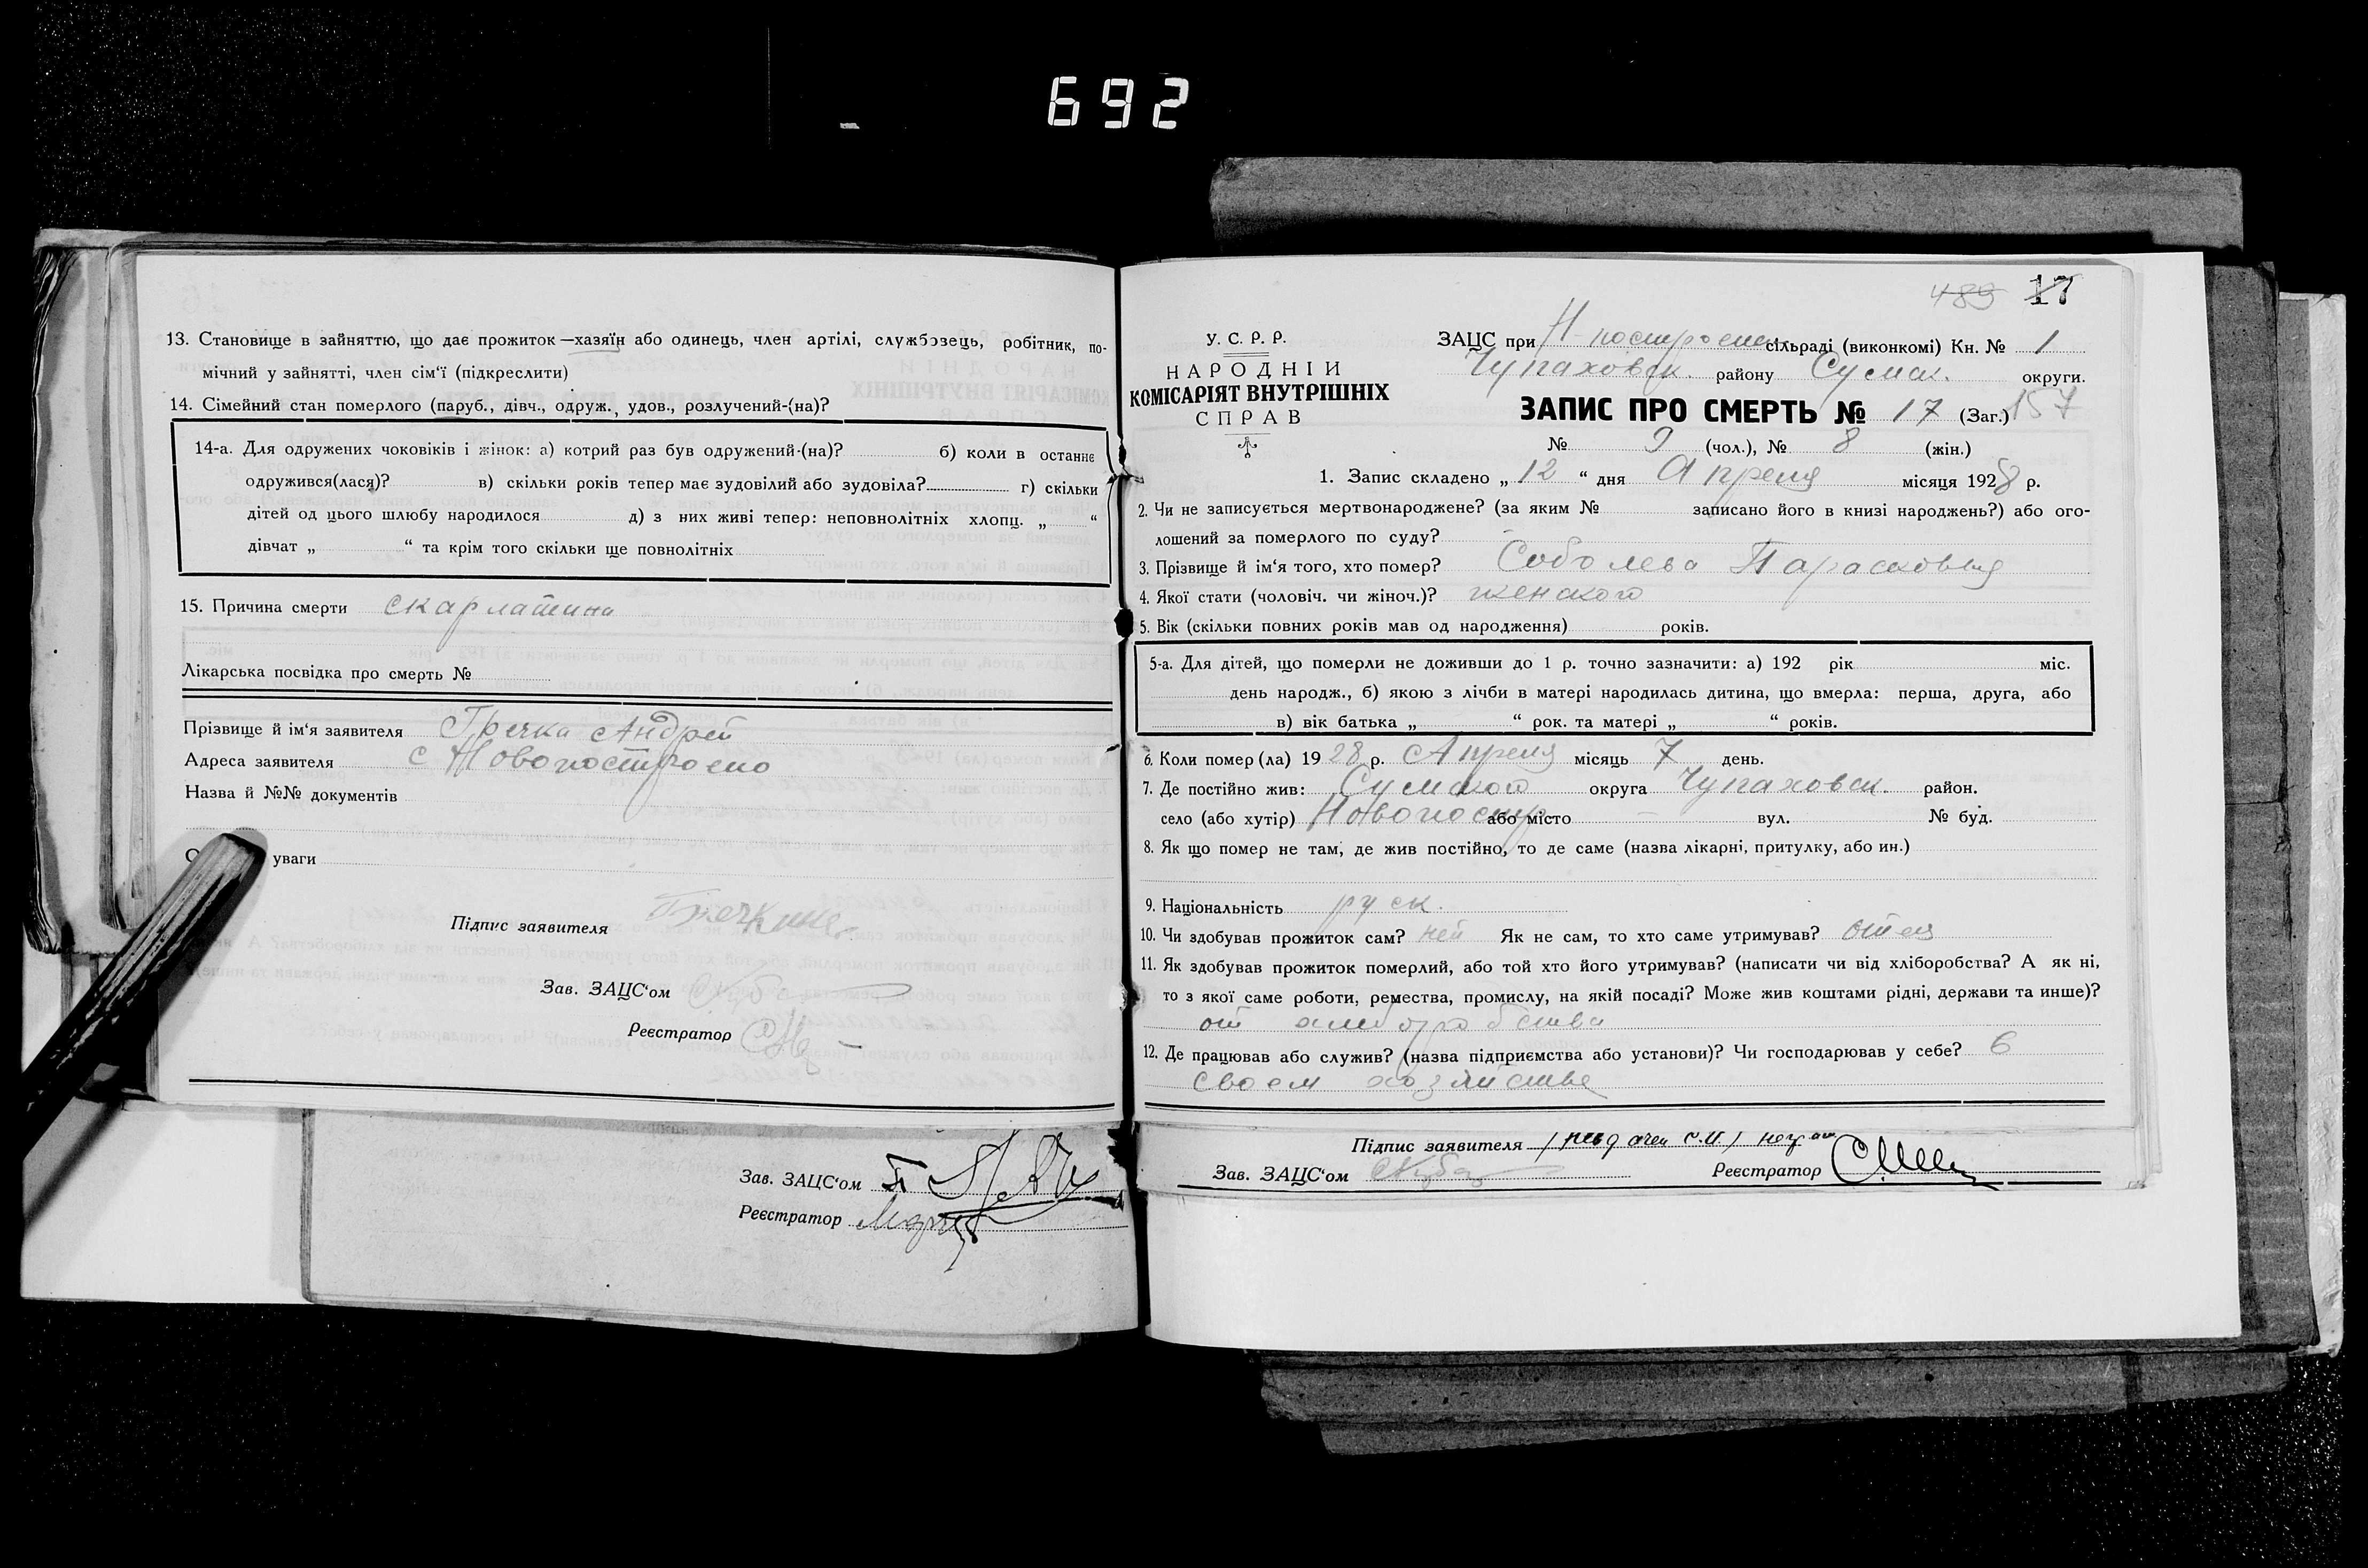 692
13. Становище в зайняттю, що дає прожиток—хазяїн або одинець, член артілі, службовець, робітник, по-
мічний у зайнятті, член сім‘ї (підкреслити)
14. Сімейний стан померлого (паруб., дівч., одруж., удов., розлучений-(на)?
14-а. Для одружених чоковіків і жінок: а) котрий раз був одружений-(на)? б) коли в останнє
одружився(лася)? в) скільки років тепер має зудовілий або зудовіла? г) скільки
дітей од цього шлюбу народилося д) з них живі тепер: неповнолітніх хлопц. „ “
дівчат „ “ та крім того скільки ще повнолітніх
15. Причина смерти скарлатина
Лікарська посвідка про смерть №
Прізвище й ім‘я заявителя Гречка Андрей
Адреса заявителя с Новопостроено
Назва й №№ документів
уваги
Підпис заявителя
Зав. ЗАЦС‘ом
Реєстратор
Зав. ЗАЦС‘ом
Реєстратор
489 17
У. С. Р. Р.
НАРОДНІЙ
КОМІСАРІЯТ ВНУТРІШНІХ
СПРАВ
ЗАЦС при Н-построен сільраді (виконкомі) Кн. № 1
Чупаховск. району Сумск. округи.
ЗАПИС ПРО СМЕРТЬ № 17 (Заг.) 157
№ 9 (чол.), № 8 (жін.)
1. Запис складено „ 12 “ дня Апреля місяця 1928 р.
2. Чи не записується мертвонароджене? (за яким № записано його в книзі народжень?) або ого-
лошений за померлого по суду?
3. Прізвище й ім‘я того, хто помер? Соболева Парасковья
4. Якої стати (чоловіч. чи жіноч.)? женского
5. Вік (скільки повних років мав од народження) років.
5-а. Для дітей, що померли не доживши до 1 р. точно зазначити: а) 192 рік міс.
день народж., б) якою з лічби в матері народилась дитина, що вмерла: перша, друга, або
в) вік батька „ “ рок. та матері „ “ років.
6. Коли помер (ла) 1928 р. Апреля місяць 7 день.
7. Де постійно жив: Сумской округа Чупаховск. район.
село (або хутір) Новопостр або місто — вул. № буд.
8. Як що помер не там, де жив постійно, то де саме (назва лікарні, притулку, або ин.)
9. Національність руск.
10. Чи здобував прожиток сам? нет Як не сам, то хто саме утримував? отец
11. Як здобував прожиток померлий, або той хто його утримував? (написати чи від хліборобства? А як ні,
то з якої саме роботи, ремества, промислу, на якій посаді? Може жив коштами рідні, держави та инше)?
от хлиборобства
12. Де працював або служив? (назва підприємства або установи)? Чи господарював у себе? в
своем хозяистве
Підпис заявителя
Зав. ЗАЦС‘ом Реєстратор